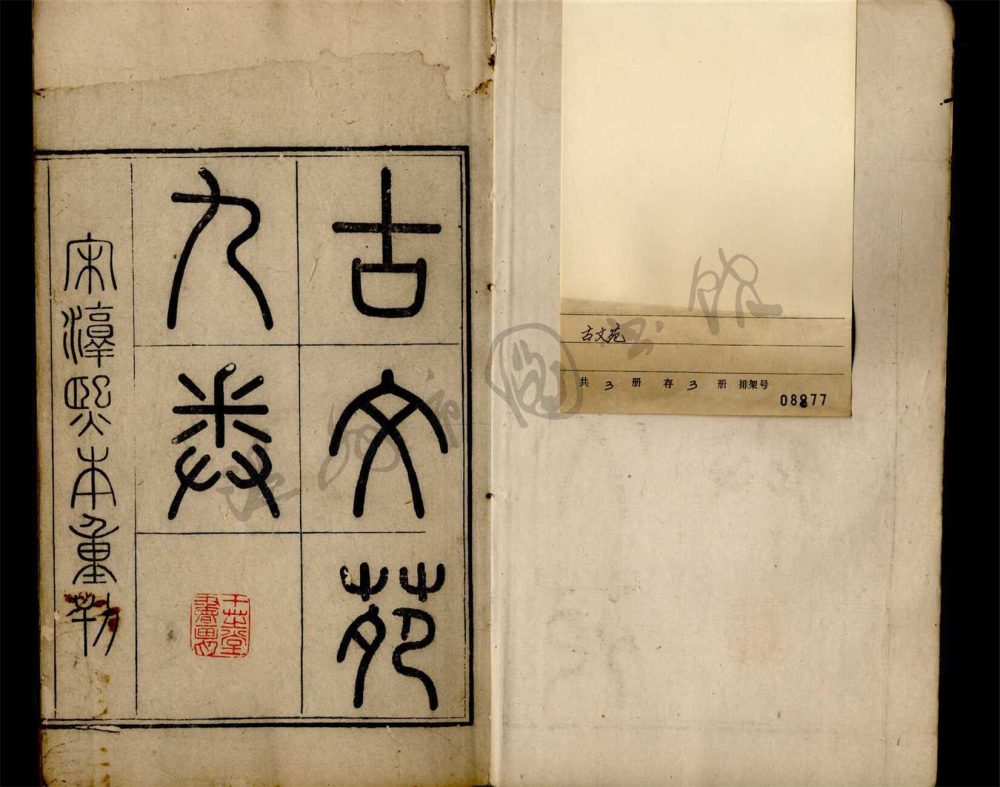 古文苑
九卷
宋淳熙本重勒
古文苑
共 3 册 存 3 册 排架号
08877
图书馆